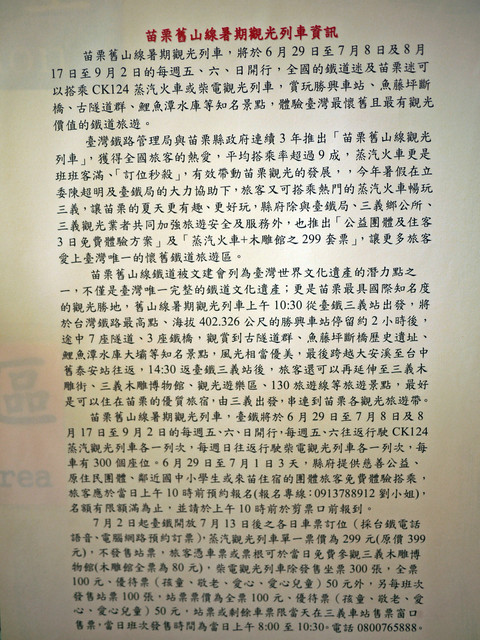 苗栗舊山線暑期觀光列車資訊
苗栗舊山線暑期觀光列車，將於6月29日至7月8日及8月
17日至9月2日的每週五、六、日開行，全國的鐵道迷及苗栗迷可
以搭乘CK124蒸汽火車或柴電觀光列車，賞玩勝興車站、魚藤坪斷
橋、古隧道群、鯉魚潭水庫等知名景點，體驗臺灣最懷舊且最有觀光
價值的鐵道旅遊。
臺灣鐵路管理局與苗栗縣政府連續3年推出「苗栗舊山線觀光
列車」，獲得全國旅客的熱愛，平均搭乘率超過9成，蒸汽火車更是
班班客滿、「訂位秒殺」，有效帶動苗栗觀光的發展，，今年暑假在立
委陳超明及臺鐵局的大力協助下，旅客又可搭乘熱門的蒸汽火車暢玩
三義，讓苗栗的夏天更有趣、更好玩，縣府除與臺鐵局、三義鄉公所、
三義觀光業者共同加強旅遊安全及服務外，也推出「公益團體及住客
3日免費體驗方案」及「蒸汽火車+木雕館之299套票」，讓更多旅客
愛上臺灣唯一的懷舊鐵道旅遊區。
苗栗舊山線鐵道被文建會列為臺灣世界文化遺產的潛力點之
一，不僅是臺灣唯一完整的鐵道文化遺產；更是苗栗最具國際知名度
的觀光勝地，舊山線暑期觀光列車上午10:30從臺鐵三義站出發，將
於台灣鐵路最高點、海拔402.326公尺的勝興車站停留約2小時後，
途中7座隧道、3座鐵橋，觀賞到古隧道群、魚藤坪斷橋歷史遺址、
鯉魚潭水庫大壩等知名景點，風光相當優美，最後跨越大安溪至台中
舊泰安站往返，14:30返臺鐵三義站後，旅客還可以再延伸至三義木
雕街、三義木雕博物館、觀光遊樂區、130旅遊線等旅遊景點，最好
是可以住在苗栗的優質旅宿，由三義出發，串連到苗栗各觀光旅遊帶。
苗栗舊山線暑期觀光列車，臺鐵將於6月29日至7月8日及8
月17日至9月2日的每週五、六、日開行，每週五、六往返行駛CK124
蒸汽觀光列車各一列次，每週日往返行駛柴電觀光列車各一列次，每
車有300個座位。6月29日至7月1日3天，縣府提供慈善公益、
原住民團體、鄰近國中小學生或來苗住宿的團體旅客免費體驗搭乘，
旅客應於當日上午10時前預約報名(報名專線：0913788912劉小姐)，
名額有限額滿為止，並請於上午10時前於剪票口前報到。
7月2日起臺鐵開放7月13日後之各日車票訂位（採台鐵電話
語音、電腦網路預約訂票)，蒸汽觀光列車單一票價為299元(原價399
元)，不發售站票，旅客憑車票或票根可於當日免費參觀三義木雕博
物館(木雕館全票為80元)，柴電觀光列車除發售坐票300張，全票
100元、優待票（孩童、敬老、愛心、愛心兒童）50元外，另每班次
發售站票100張，站票票價為全票100元、優待票（孩童、敬老、愛
心、愛心兒童）50元，站票或剩餘車票限當天在三義車站售票窗口
售票，當日班次發售時間為當日上午8:00至10:30。電話0800765888。
區
rea